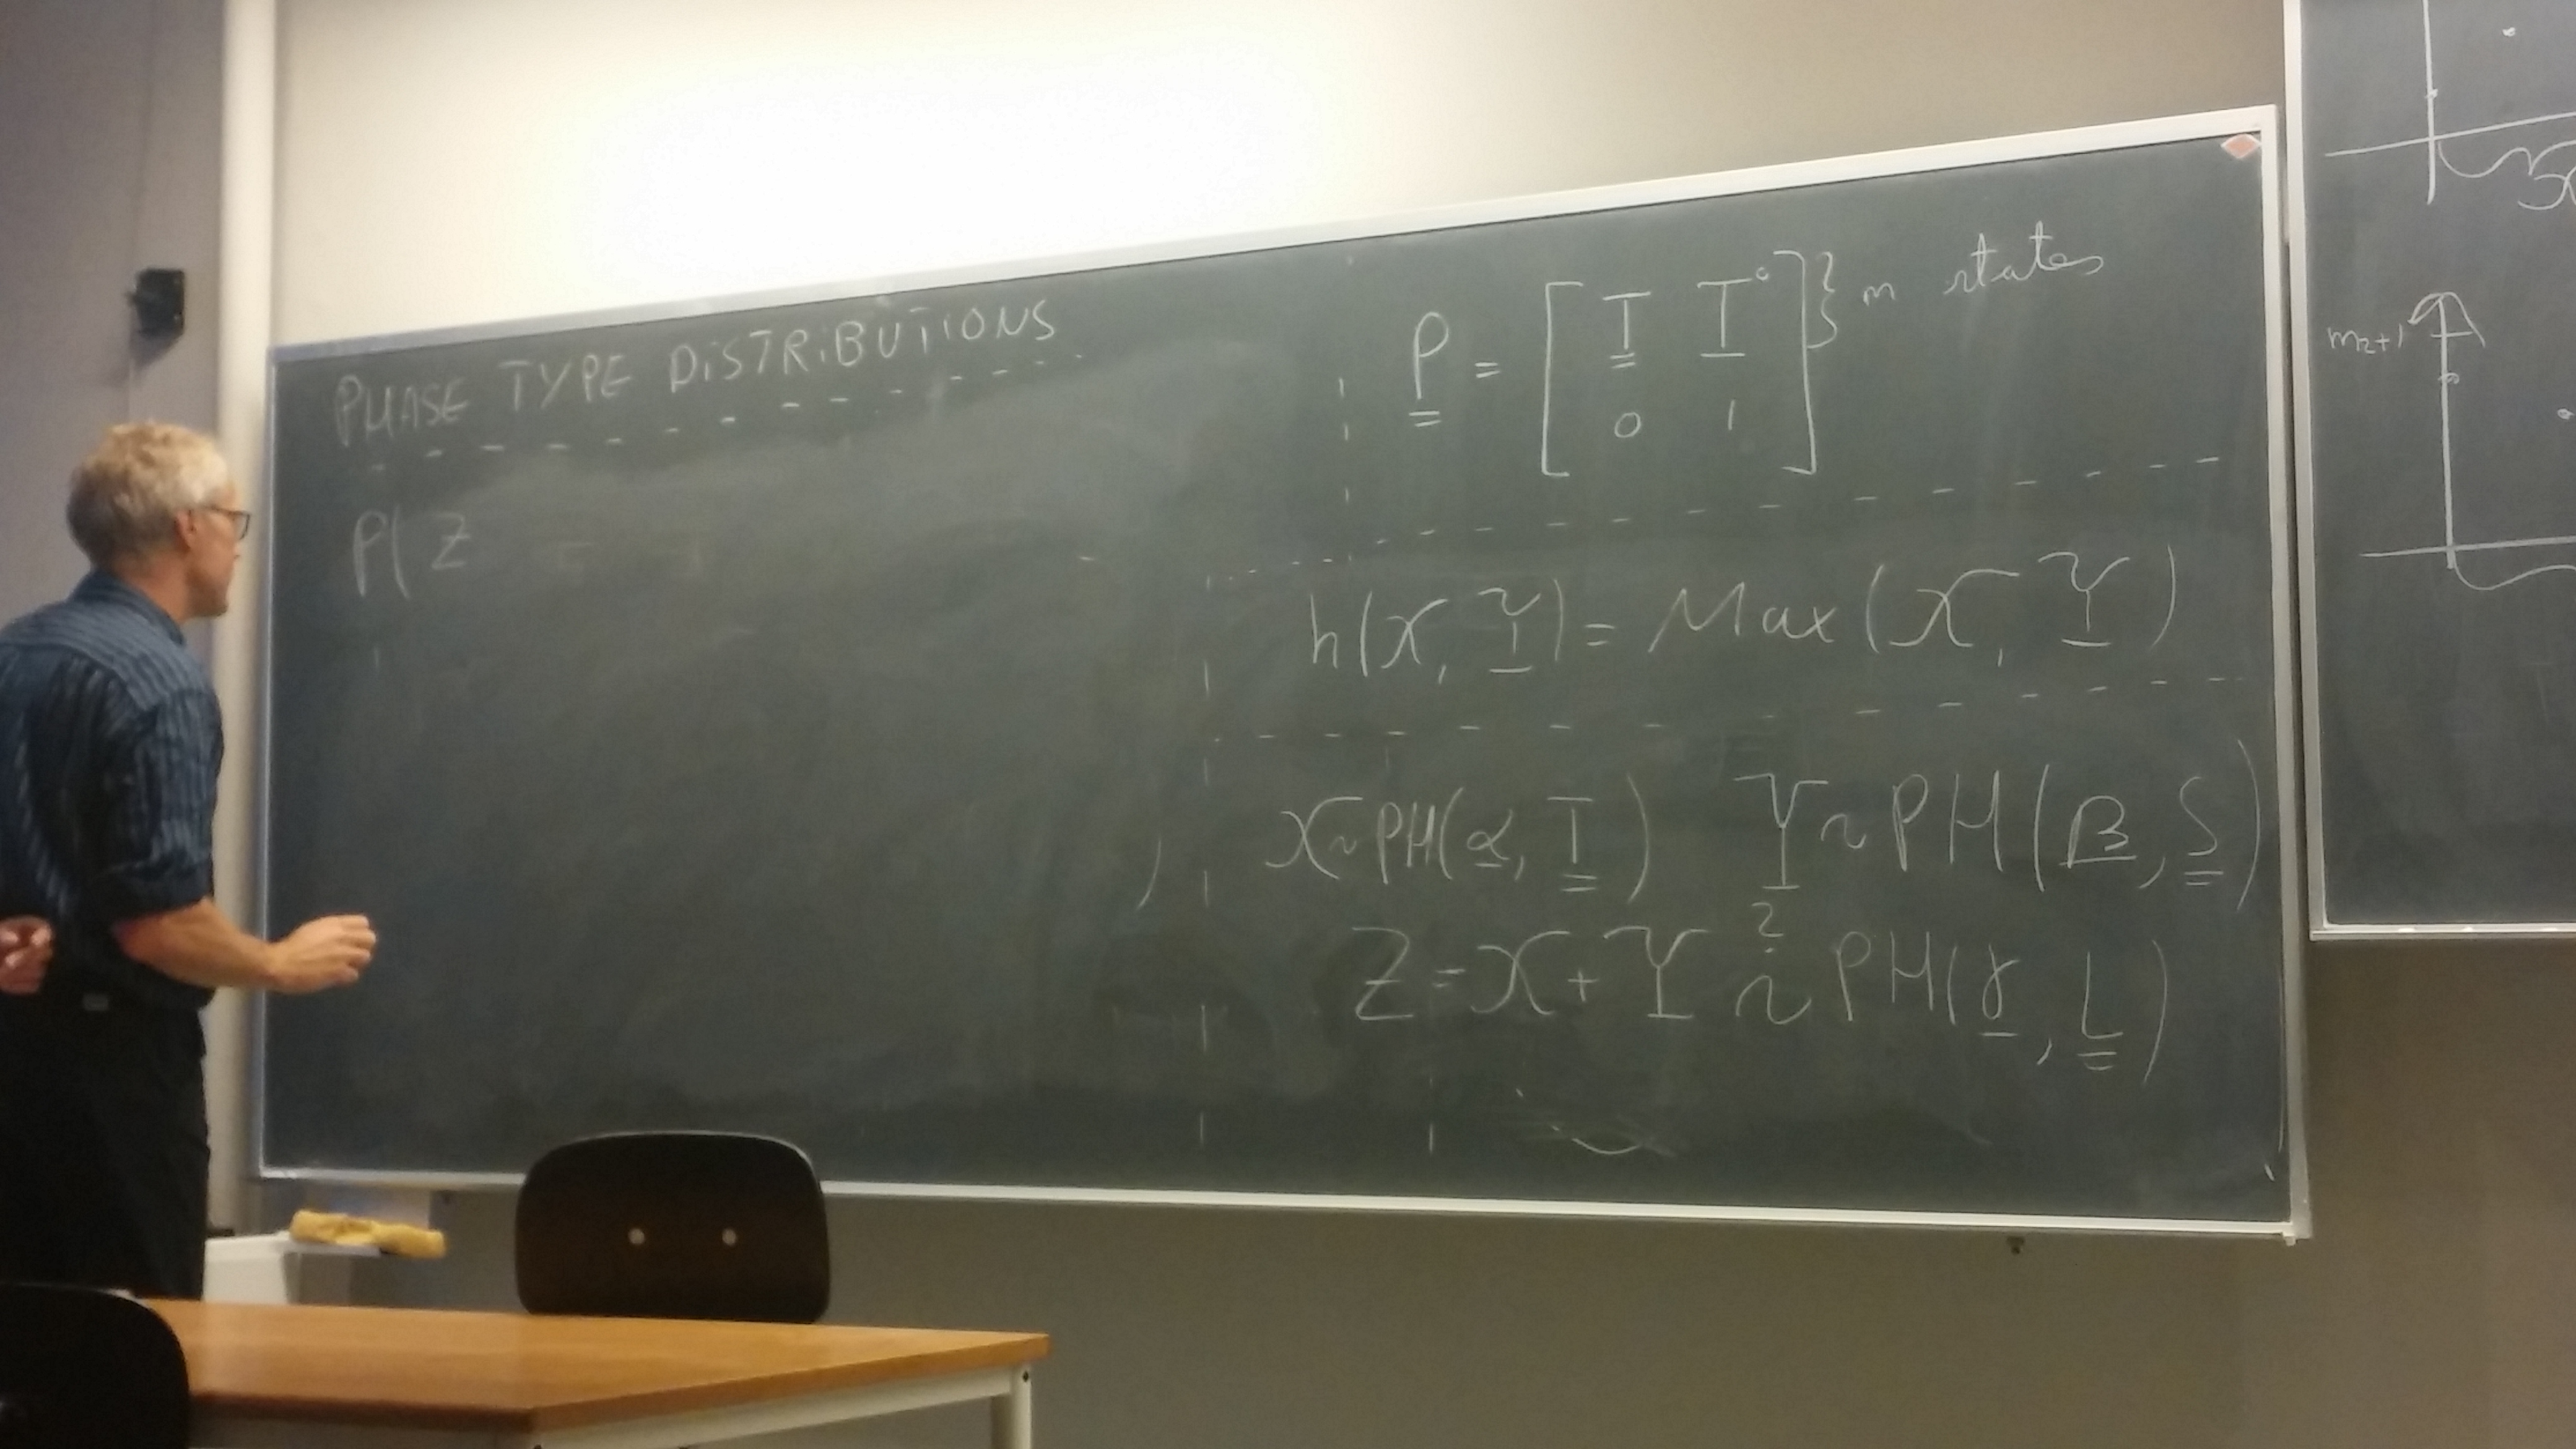 PHASE TYPE DISTRIBUTIONS
P( Z =
P = [ T T° ] } m states
[ 0 1 ]
h(X, Y) = Max(X, Y)
X ~ PH(α, T) Y ~ PH(β, S)
Z = X + Y ?~ PH(γ, L)
m₂+1
x